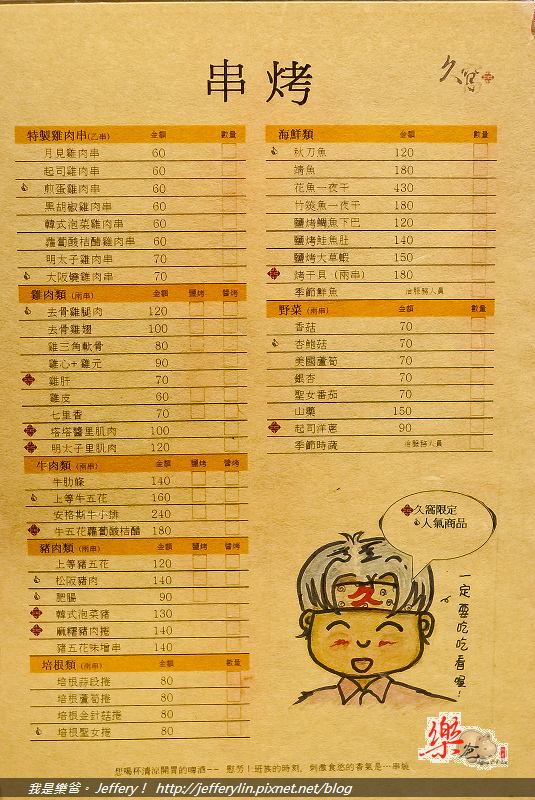 串烤
久窩
特製雞肉串(乙串) 金額 數量
月見雞肉串 60
起司雞肉串 60
煎蛋雞肉串 60
黑胡椒雞肉串 60
韓式泡菜雞肉串 60
蘿蔔酸桔醋雞肉串 60
明太子雞肉串 70
大阪燒雞肉串 70
雞肉類(兩串) 金額 鹽烤 醬烤
去骨雞腿肉 120
去骨雞翅 100
雞三角軟骨 80
雞心+雞元 90
雞肝 70
雞皮 60
七里香 70
塔塔醬里肌肉 100
明太子里肌肉 120
牛肉類(兩串) 金額 鹽烤 醬烤
牛肋條 140
上等牛五花 160
安格斯牛小排 240
牛五花蘿蔔酸桔醋 180
豬肉類(兩串) 金額 鹽烤 醬烤
上等豬五花 120
松阪豬肉 140
肥腸 90
韓式泡菜豬 130
麻糬豬肉捲 140
豬五花味增串 140
培根類(兩串) 金額 數量
培根蒜段捲 80
培根蘆筍捲 80
培根金針菇捲 80
培根聖女捲 80
海鮮類 金額 數量
秋刀魚 120
鯖魚 180
花魚一夜干 430
竹筴魚一夜干 180
鹽烤鯛魚下巴 120
鹽烤鮭魚肚 140
鹽烤大草蝦 150
烤干貝(兩串) 180
季節鮮魚 洽服務人員
野菜(兩串) 金額 數量
香菇 70
杏鮑菇 70
美國蘆筍 70
銀杏 70
聖女番茄 70
山藥 150
起司洋蔥 90
季節時蔬 洽服務人員
久窩限定
人氣商品
久
一定要吃吃看喔!
樂爸
想喝杯清涼開胃的啤酒-- 慰勞!班族的時刻, 刺激食慾的香氣是…串燒
我是樂爸。Jeffery! http://jefferylin.pixnet.net/blog